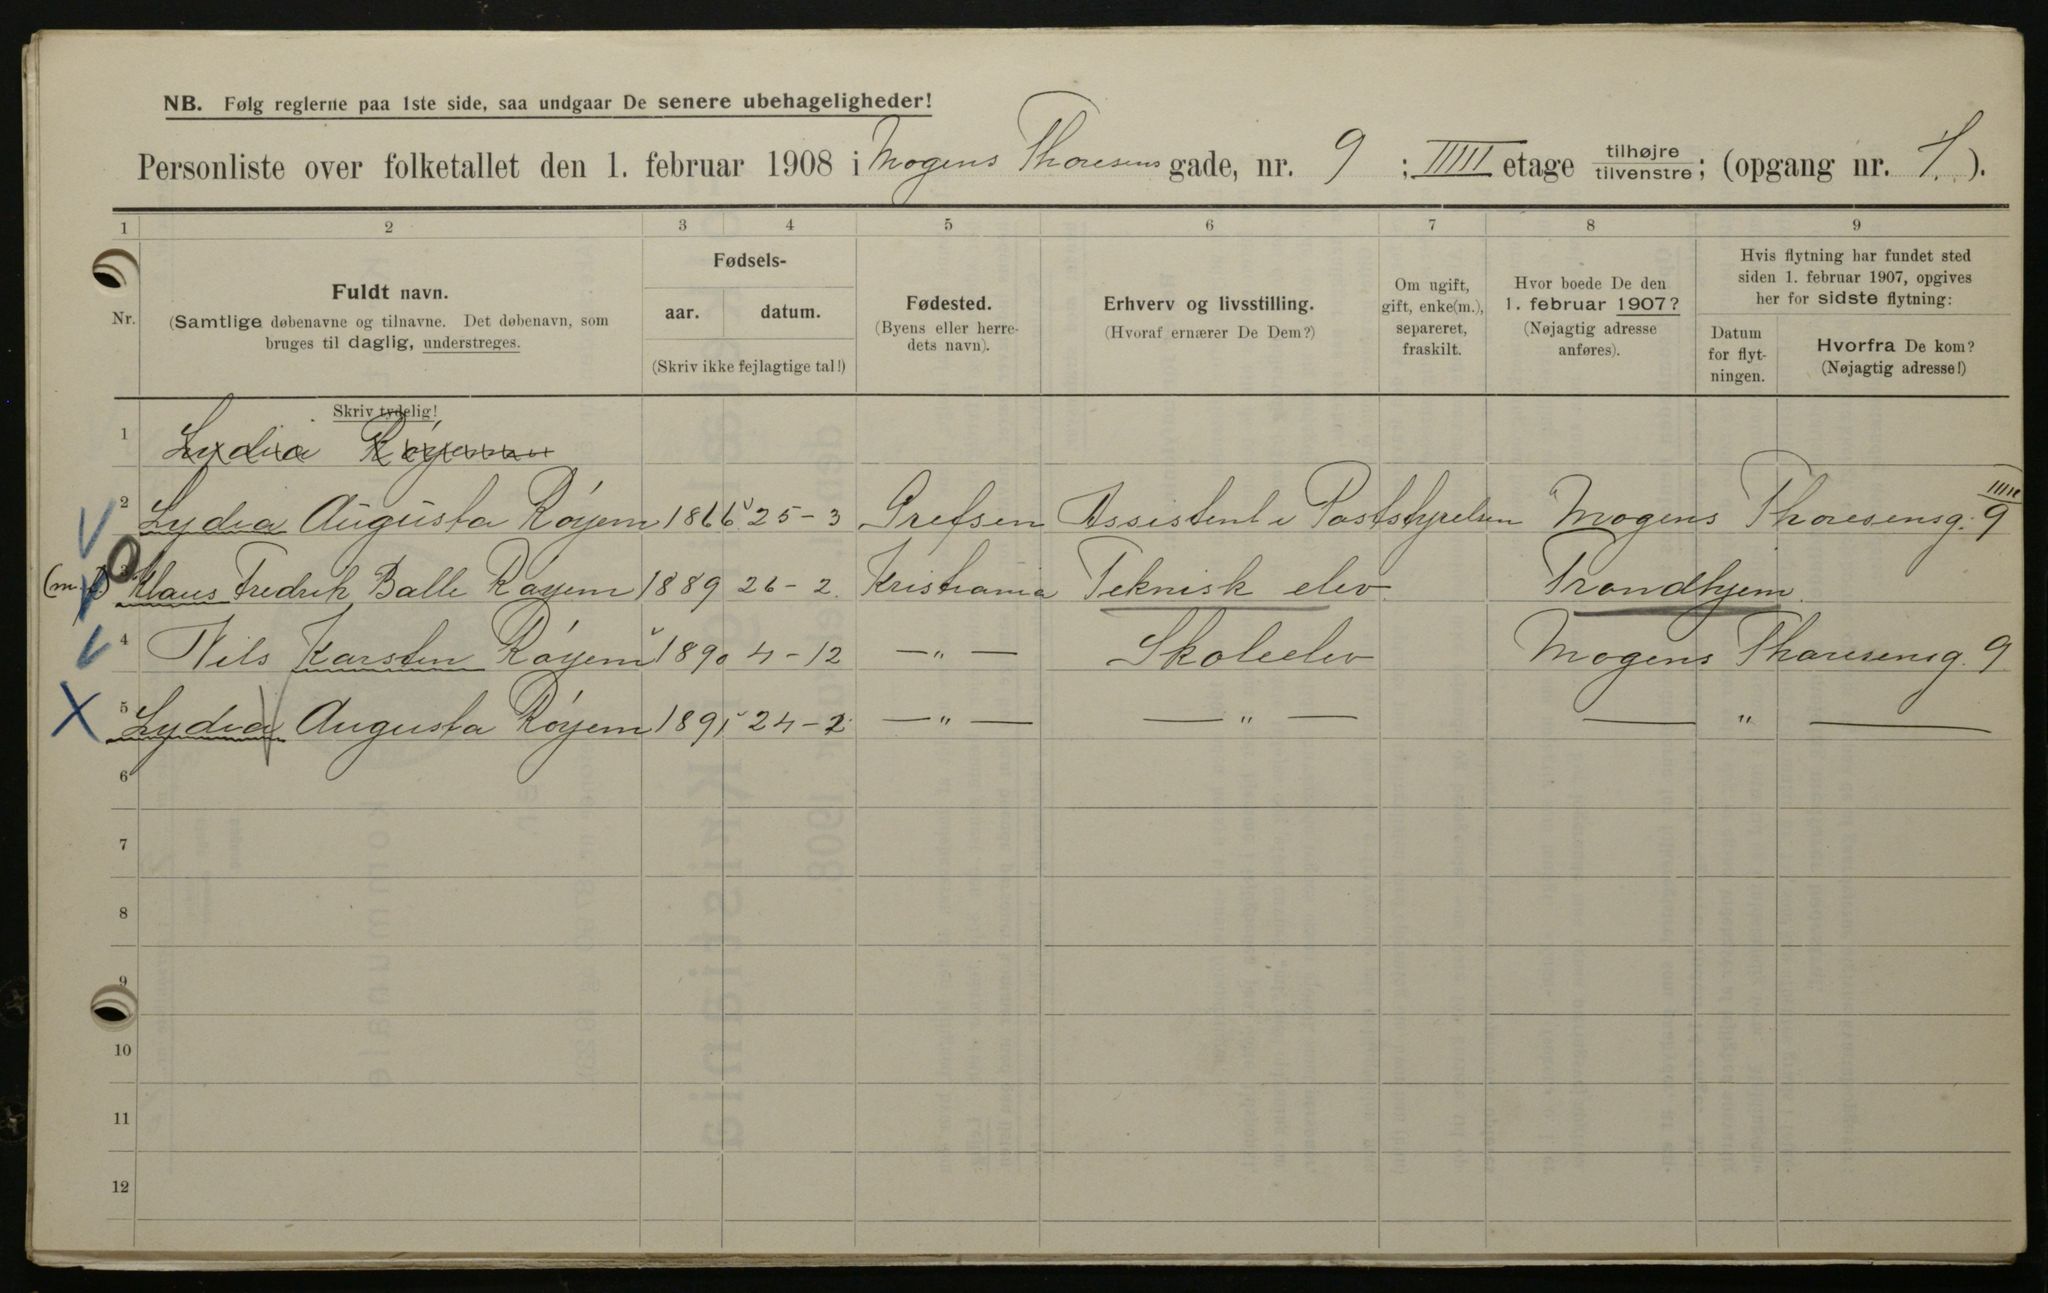 NB. Følg reglerne paa 1ste side, saa undgaar De senere ubehageligheder!
Personliste over folketallet den 1. februar 1908 i Mogens Thoresens gade, nr. 9 ; IIIII etage tilhøjre tilvenstre; (opgang nr. 1.).
1 2 3 4 5 6 7 8 9
Nr.
Fuldt navn.
(Samtlige døbenavne og tilnavne. Det døbenavn, som
bruges til daglig, understreges.
Skriv tydelig!
Fødsels-
aar. datum.
(Skriv ikke fejlagtige tal!)
Fødested.
(Byens eller herre-
dets navn).
Erhverv og livsstilling.
(Hvoraf ernærer De Dem?)
Om ugift,
gift, enke(m.),
separeret,
fraskilt.
Hvor boede De den
1. februar 1907?
(Nøjagtig adresse
anføres).
Hvis flytning har fundet sted
siden 1. februar 1907, opgives
her for sidste flytning:
Datum
for flyt-
ningen.
Hvorfra De kom?
(Nøjagtig adresse!)
1 Lydia Röyem
2 Lydia Augusta Röyem 1866 25-3 Grefsen Assistent i Poststyrelsen Mogens Thoresensg. 9 IIIII
(m. t) 3 Klaus Fredrik Balle Röyem 1889 26-2. Kristiania Teknisk elev. Trondhjem.
4 Nils Karsten Röyem 1890 4-12 — „ — Skoleelev Mogens Thoresensg. 9
X 5 Lydia Augusta Röyem 1891 24-2. — „ — — „ — — „ —
6
7
8
9
10
11
12